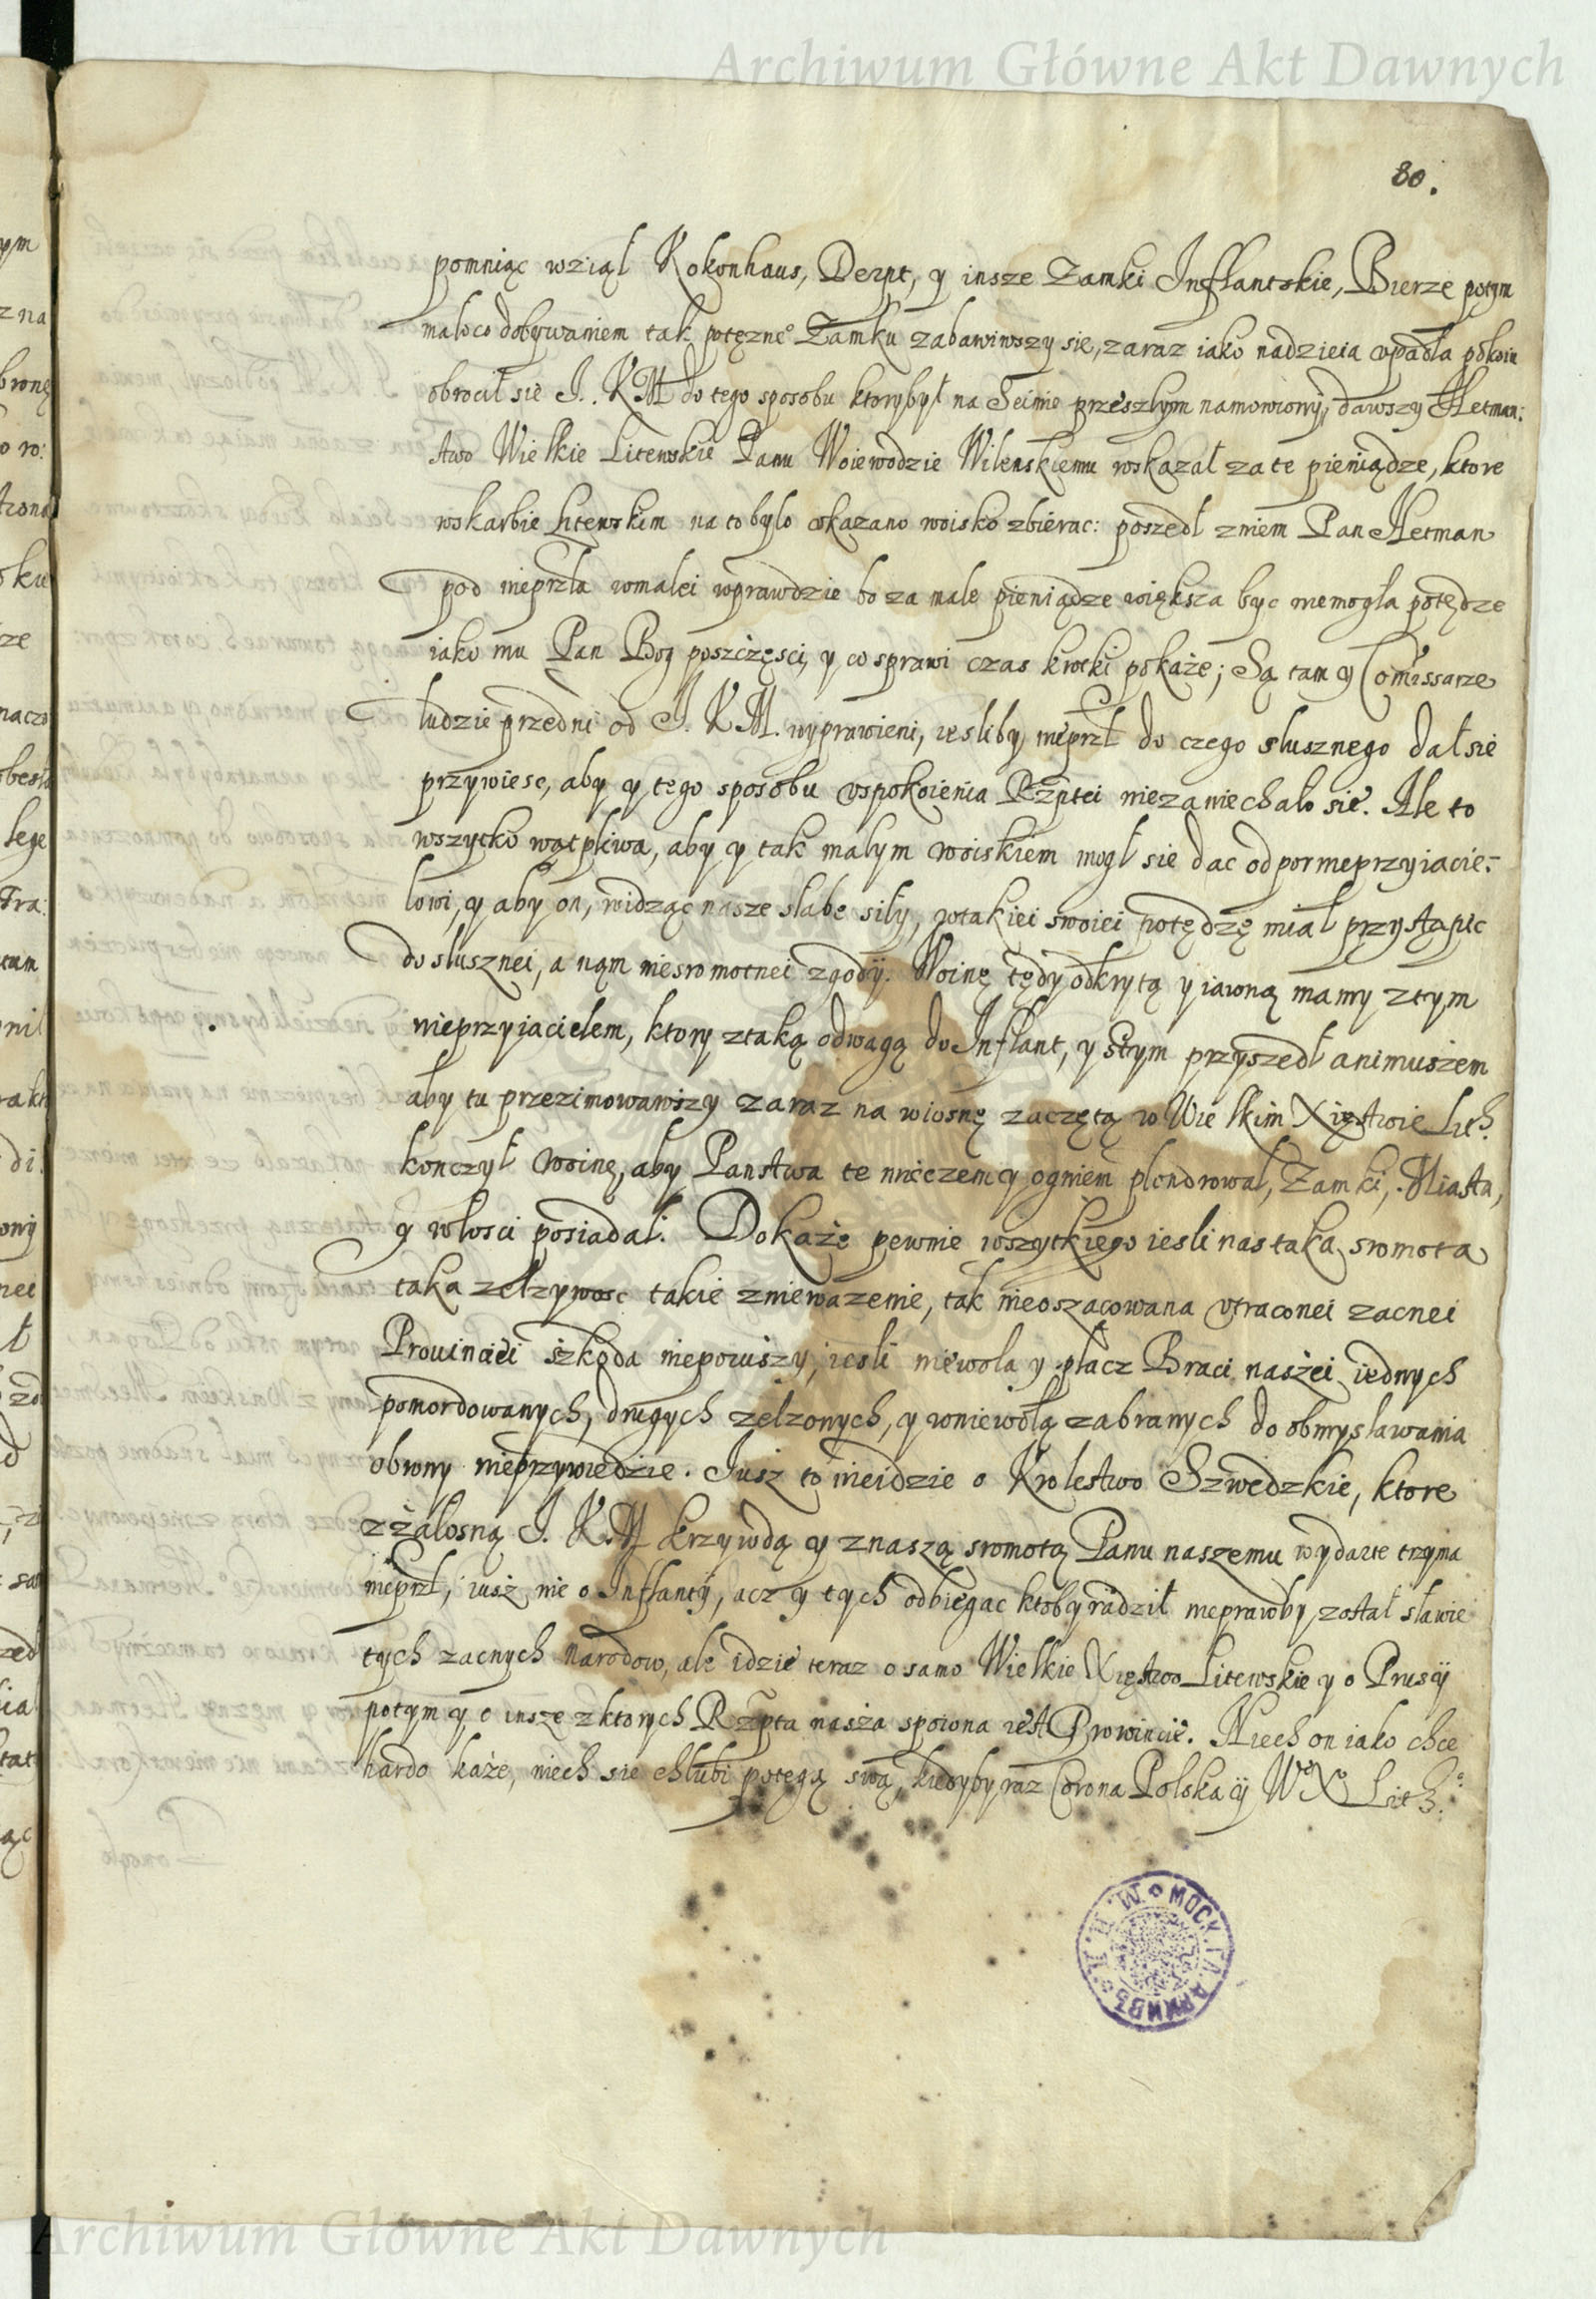 Archiwum Główne Akt Dawnych
80.
pomniąc wziął Kokonhaus, Derpt, y insze Zamki Inflantskie, Bierze potym
małoco dobywaniem tak potężne° Zamku zabawiwszy sie, zaraz iako nadzieia vpadła pokoiu
obrocił sie J. K M do tego sposobu ktory był na Seimie przeszłym namowiony, dawszy Hetman:
stwo Wielkie Litewskie Panu Woiewodzie Wilenskiemu wskazał za te pieniądze, ktore
w skarbie Litewskim na to było vkazano woisko zbierac: poszedł z niem Pan Hetman
pod nieprzla w małei wprawdzie bo za małe pieniądze większa byc niemogła potędze
iako mu Pan Bog poszczęsci, y co sprawi czas krotki pokaże; Są tam y Comissarze
ludzie przedni od J. K M. wyprawieni, iesliby nieprzl do czego slusznego dał sie
przywiesc, aby y tego sposobu vspokoienia Rzptei niezaniechało sie. Ale to
wszytko wątpliwa, aby y tak małym woiskiem mogł sie dac odpor nieprzyiacie-
lowi, y aby on, widząc nasze słabe siły, w takiei swoiei potędzę miał przystąpic
do slusznei, a nąm niesromotnei zgody. Woinę tędy odkrytą y iawną mamy z tym
nieprzyiacielem, ktory z taką odwagą do Inflant, y s tym przyszedł animuszem
aby tu przezimowawszy zaraz na wiosnę zaczętą w Wielkim Xięstwie Lith.
konczył woinę, aby Panstwa te mieczem y ogniem plondrował, Zamki, Miasta,
y włosci posiadał. Dokaże pewnie wszytkiego iesli nas taka sromota
taka zelzywosc takie zniewazenie, tak nieoszacowana vtraconei zacnei
Prouinciei szkoda nieporuszy, iesli niewola y płacz Braci naszei iednych
pomordowanych, drugych zelzonych, y w niewolą zabranych do obmysławania
obrony nieprzywiedzie. Jusz to nieidzie o Krolestwo Szwedzkie, ktore
z żałosną J. K M krzywdą y z naszą sromotą Panu naszemu wydarte trzyma
nieprzl, iusz nie o Inflanty, acz y tych odbiegac ktoby radził nieprawby został sławie
tych zacnych narodow, ale idzie teraz o samo Wielkie Xięstwo Litewskie y o Prusy
potym y o insze z ktorych Rzpta nasza spoiona iest Prowincie. Niech on iako chce
hardo każe, niech sie chlubi potegą swą, kiedyby raz Corona Polska y W° X° Lith.°
МОСК. ГЛ. АРХИВЪ М. И. Д.
Archiwum Główne Akt Dawnych